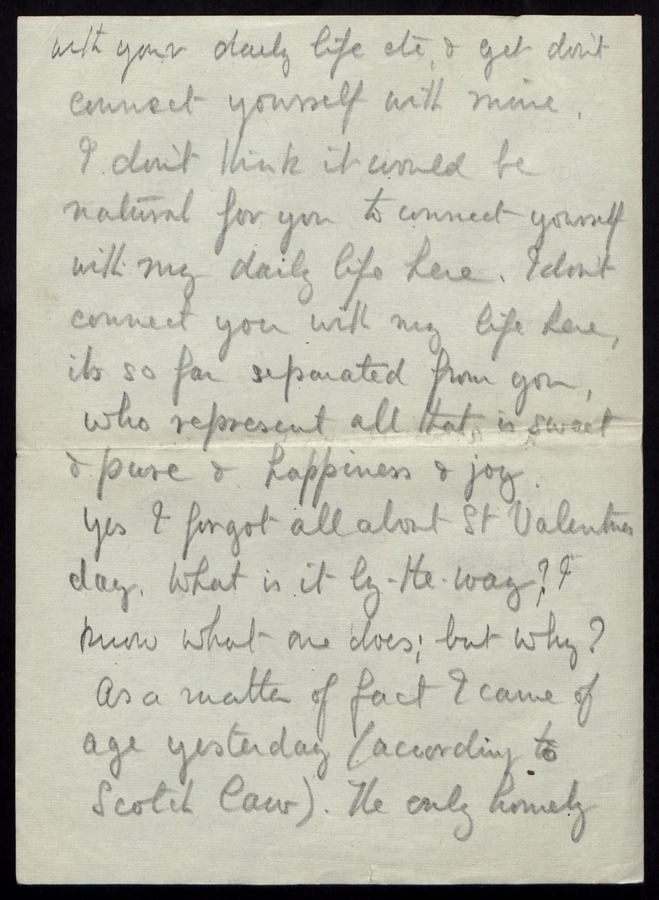 with your daily life etc, & yet don't
connect yourself with mine.
I don't think it would be
natural for you to connect yourself
with my daily life here. I don't
connect you with my life here,
its so far separated from you,
who represent all that is sweet
& pure & happiness & joy.
Yes I forgot all about St Valentines
day. What is it by-the-way? I
know what one does; but why?
As a matter of fact I came of
age yesterday (according to
Scotch Law). The only homely